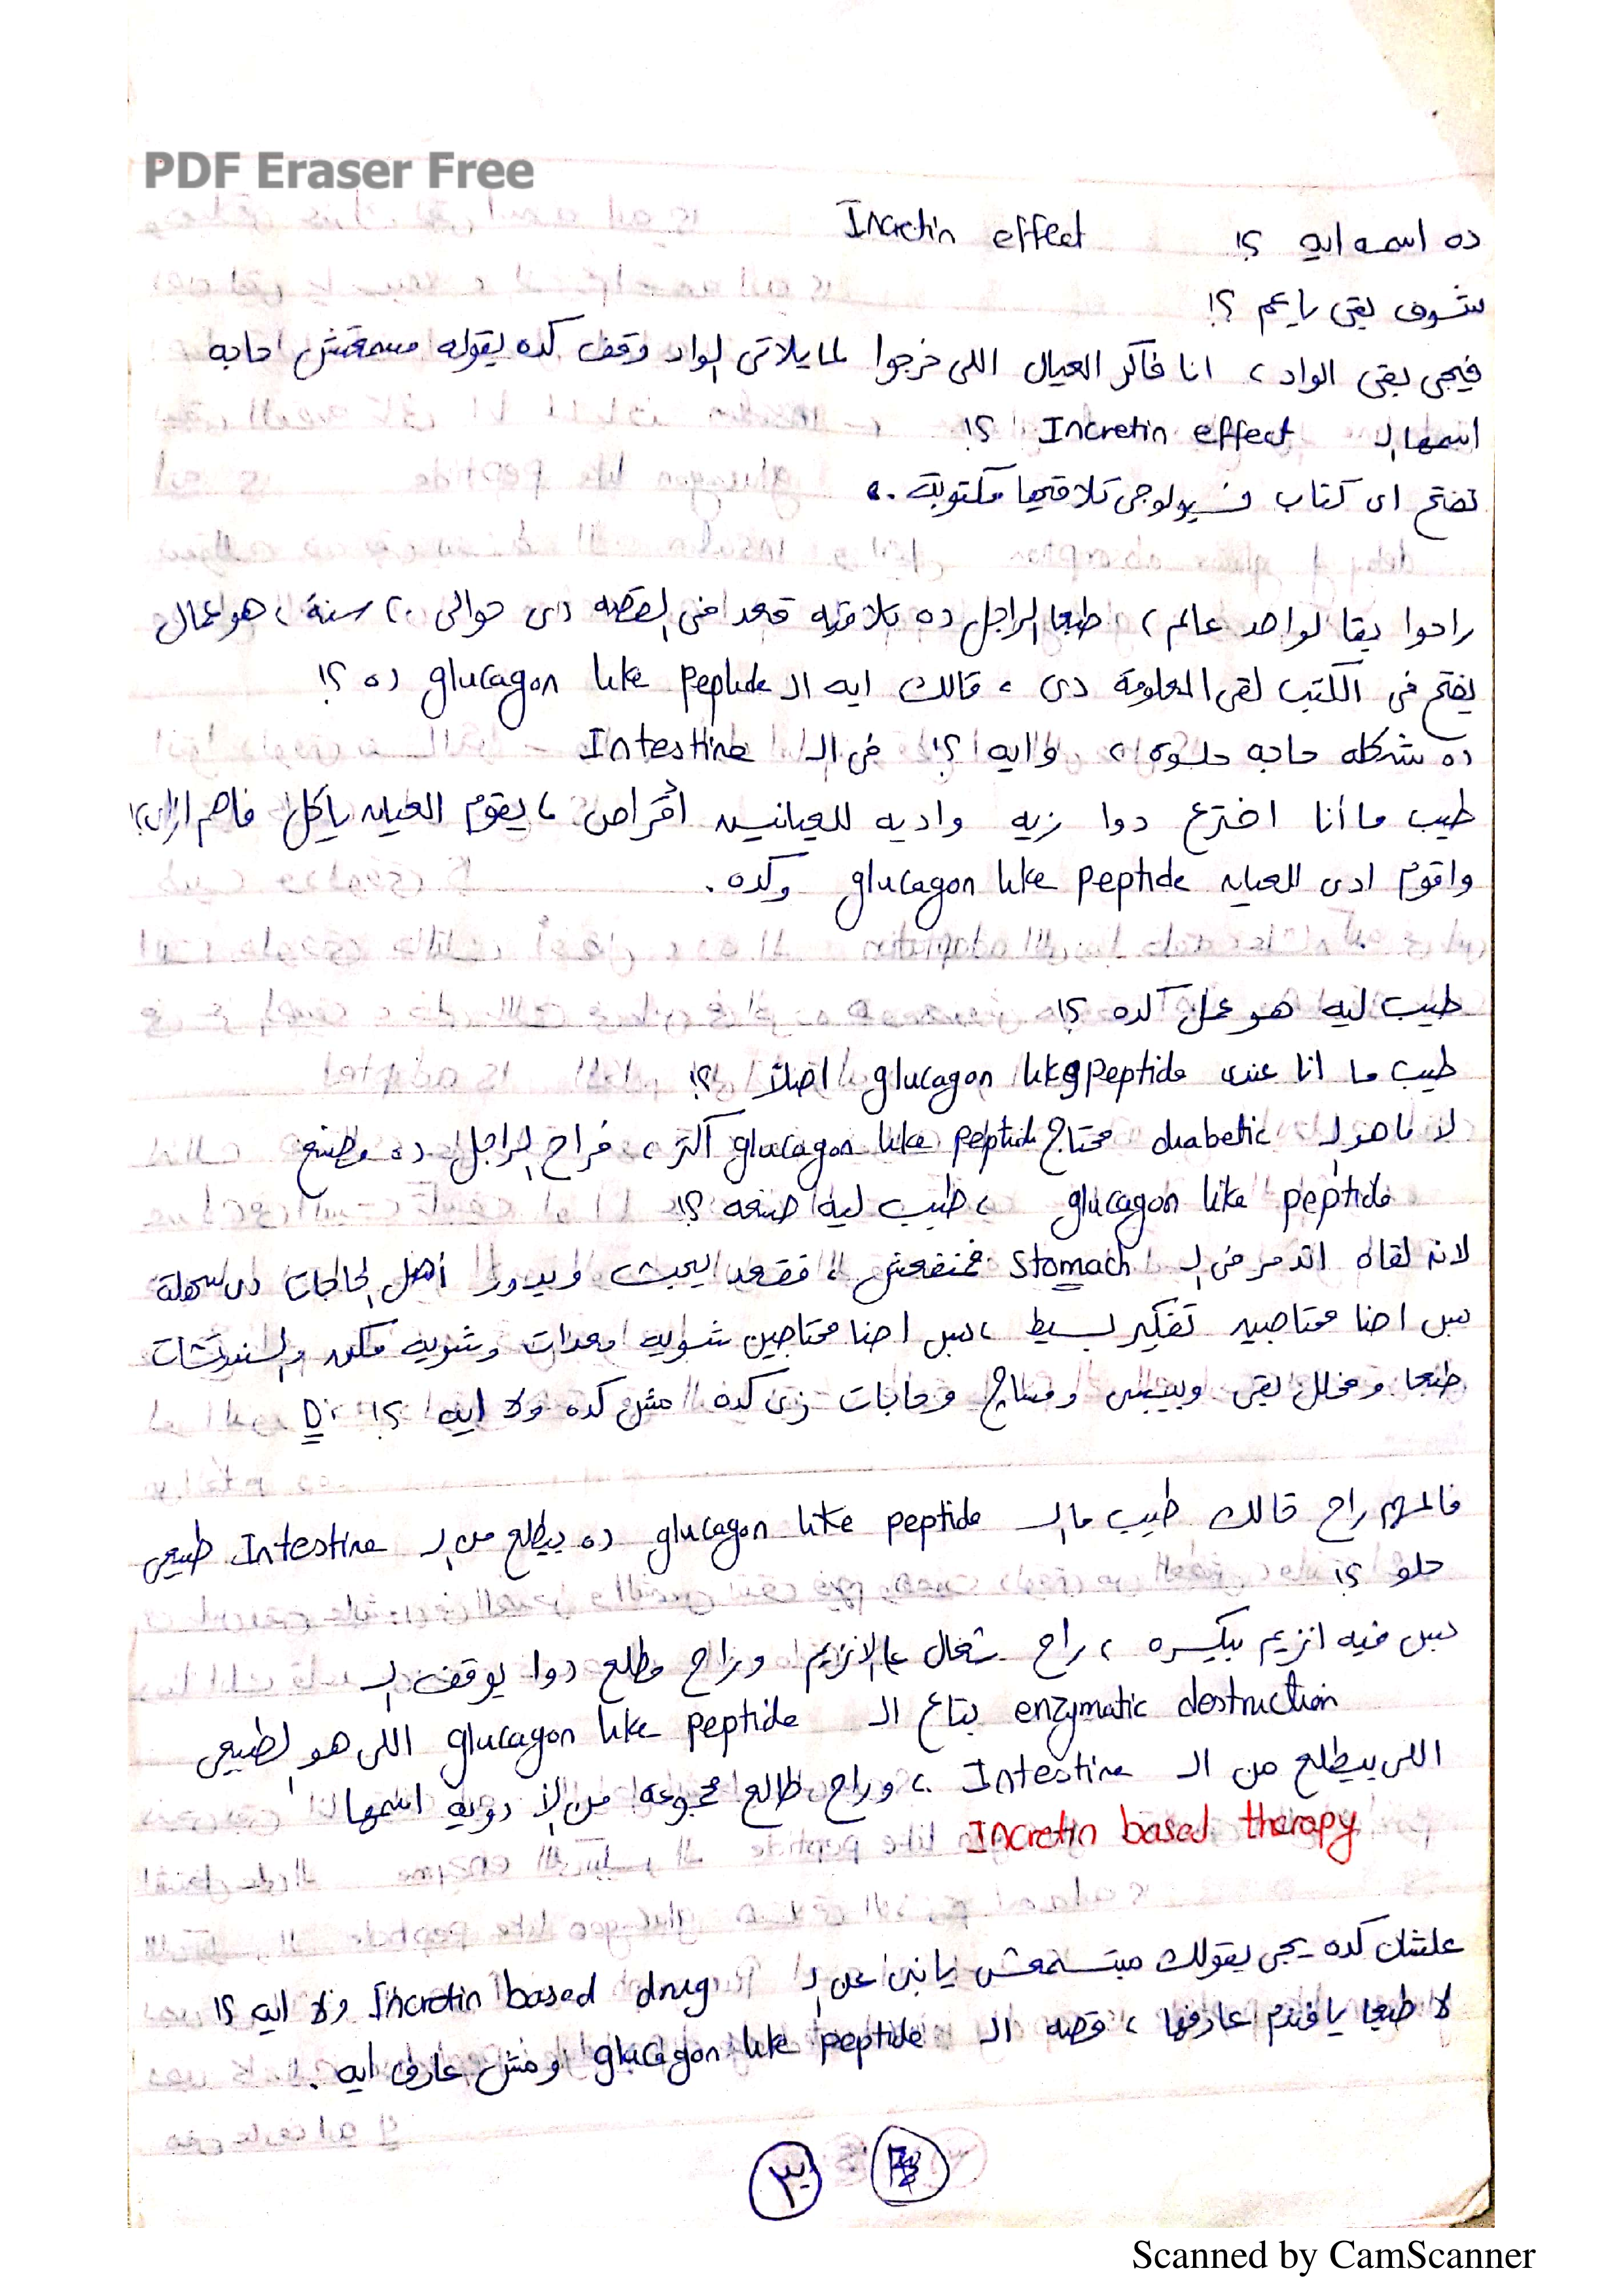 PDF Eraser Free
ده اسمه ايه ؟! Incretin effect
شوف بقى يا عم ؟!
فيجى بقى الواد، انا فاكر العيال اللى خرجوا لما يلاقى الواد وقف كده يقوله مسمعتش حاجه
اسمها الـ Incretin effect ؟!
تفتح اى كتاب فسيولوجى تلاقيها مكتوبة ..
راحوا بقا لواحد عالم، طبعا الراجل ده تلاقيه قعد فى القصه دى حوالى ٢٠ سنة، هو عمال
يفتح فى الكتب لقى المعلومة دى، قالك ايه الـ glucagon like peptide ده ؟!
ده شكله حاجه حلوه، وايه ؟! فى الـ Intestine
طيب ما أنا اخترع دوا زيه واديه للعيانين أقراص، يقوم العيان ياكل فاهم ازاى؟!
واقوم ادى العيان glucagon like peptide وكده.
طيب ليه هو عمل كده ؟!
طيب ما انا عندى glucagon like peptide اصلاً ؟!
لا ما هو الـ diabetic محتاج glucagon like peptide أكتر، فراح الراجل ده مطلع
glucagon like peptide، طيب ليه صنعه ؟!
لانه لقاه اتدمر فى الـ stomach فمنفعش، فقعد يبحث ويدور أهل الحاجات دى سهلة
بس احنا محتاجين تفكير بسيط، بس احنا محتاجين شوية معدات وشوية فكه والسندوتشات
طبعا ومخلل بقى وبيبسى ومساج وحاجات زى كده مش كده ولا ايه ؟! :D
فالمهم راح قالك طيب ما الـ glucagon like peptide ده بيطلع من الـ Intestine طبيعى
حلو ؟!
بس فيه انزيم بيكسره، راح شغال عالانزيم وراح مطلع دوا يوقف الـ
enzymatic destruction بتاع الـ glucagon like peptide اللى هو الطبيعى
اللى بيطلع من الـ Intestine، وراح طالع مجموعه من الأدويه اسمها
Incretin based therapy
علشان كده يجى يقولك مبتسمعش يا بنى عن الـ Incretin based drug ولا ايه ؟!
لا طبعا يا فندم عارفها، قصه الـ glucagon like peptide ومش عارف ايه.
٣
Scanned by CamScanner